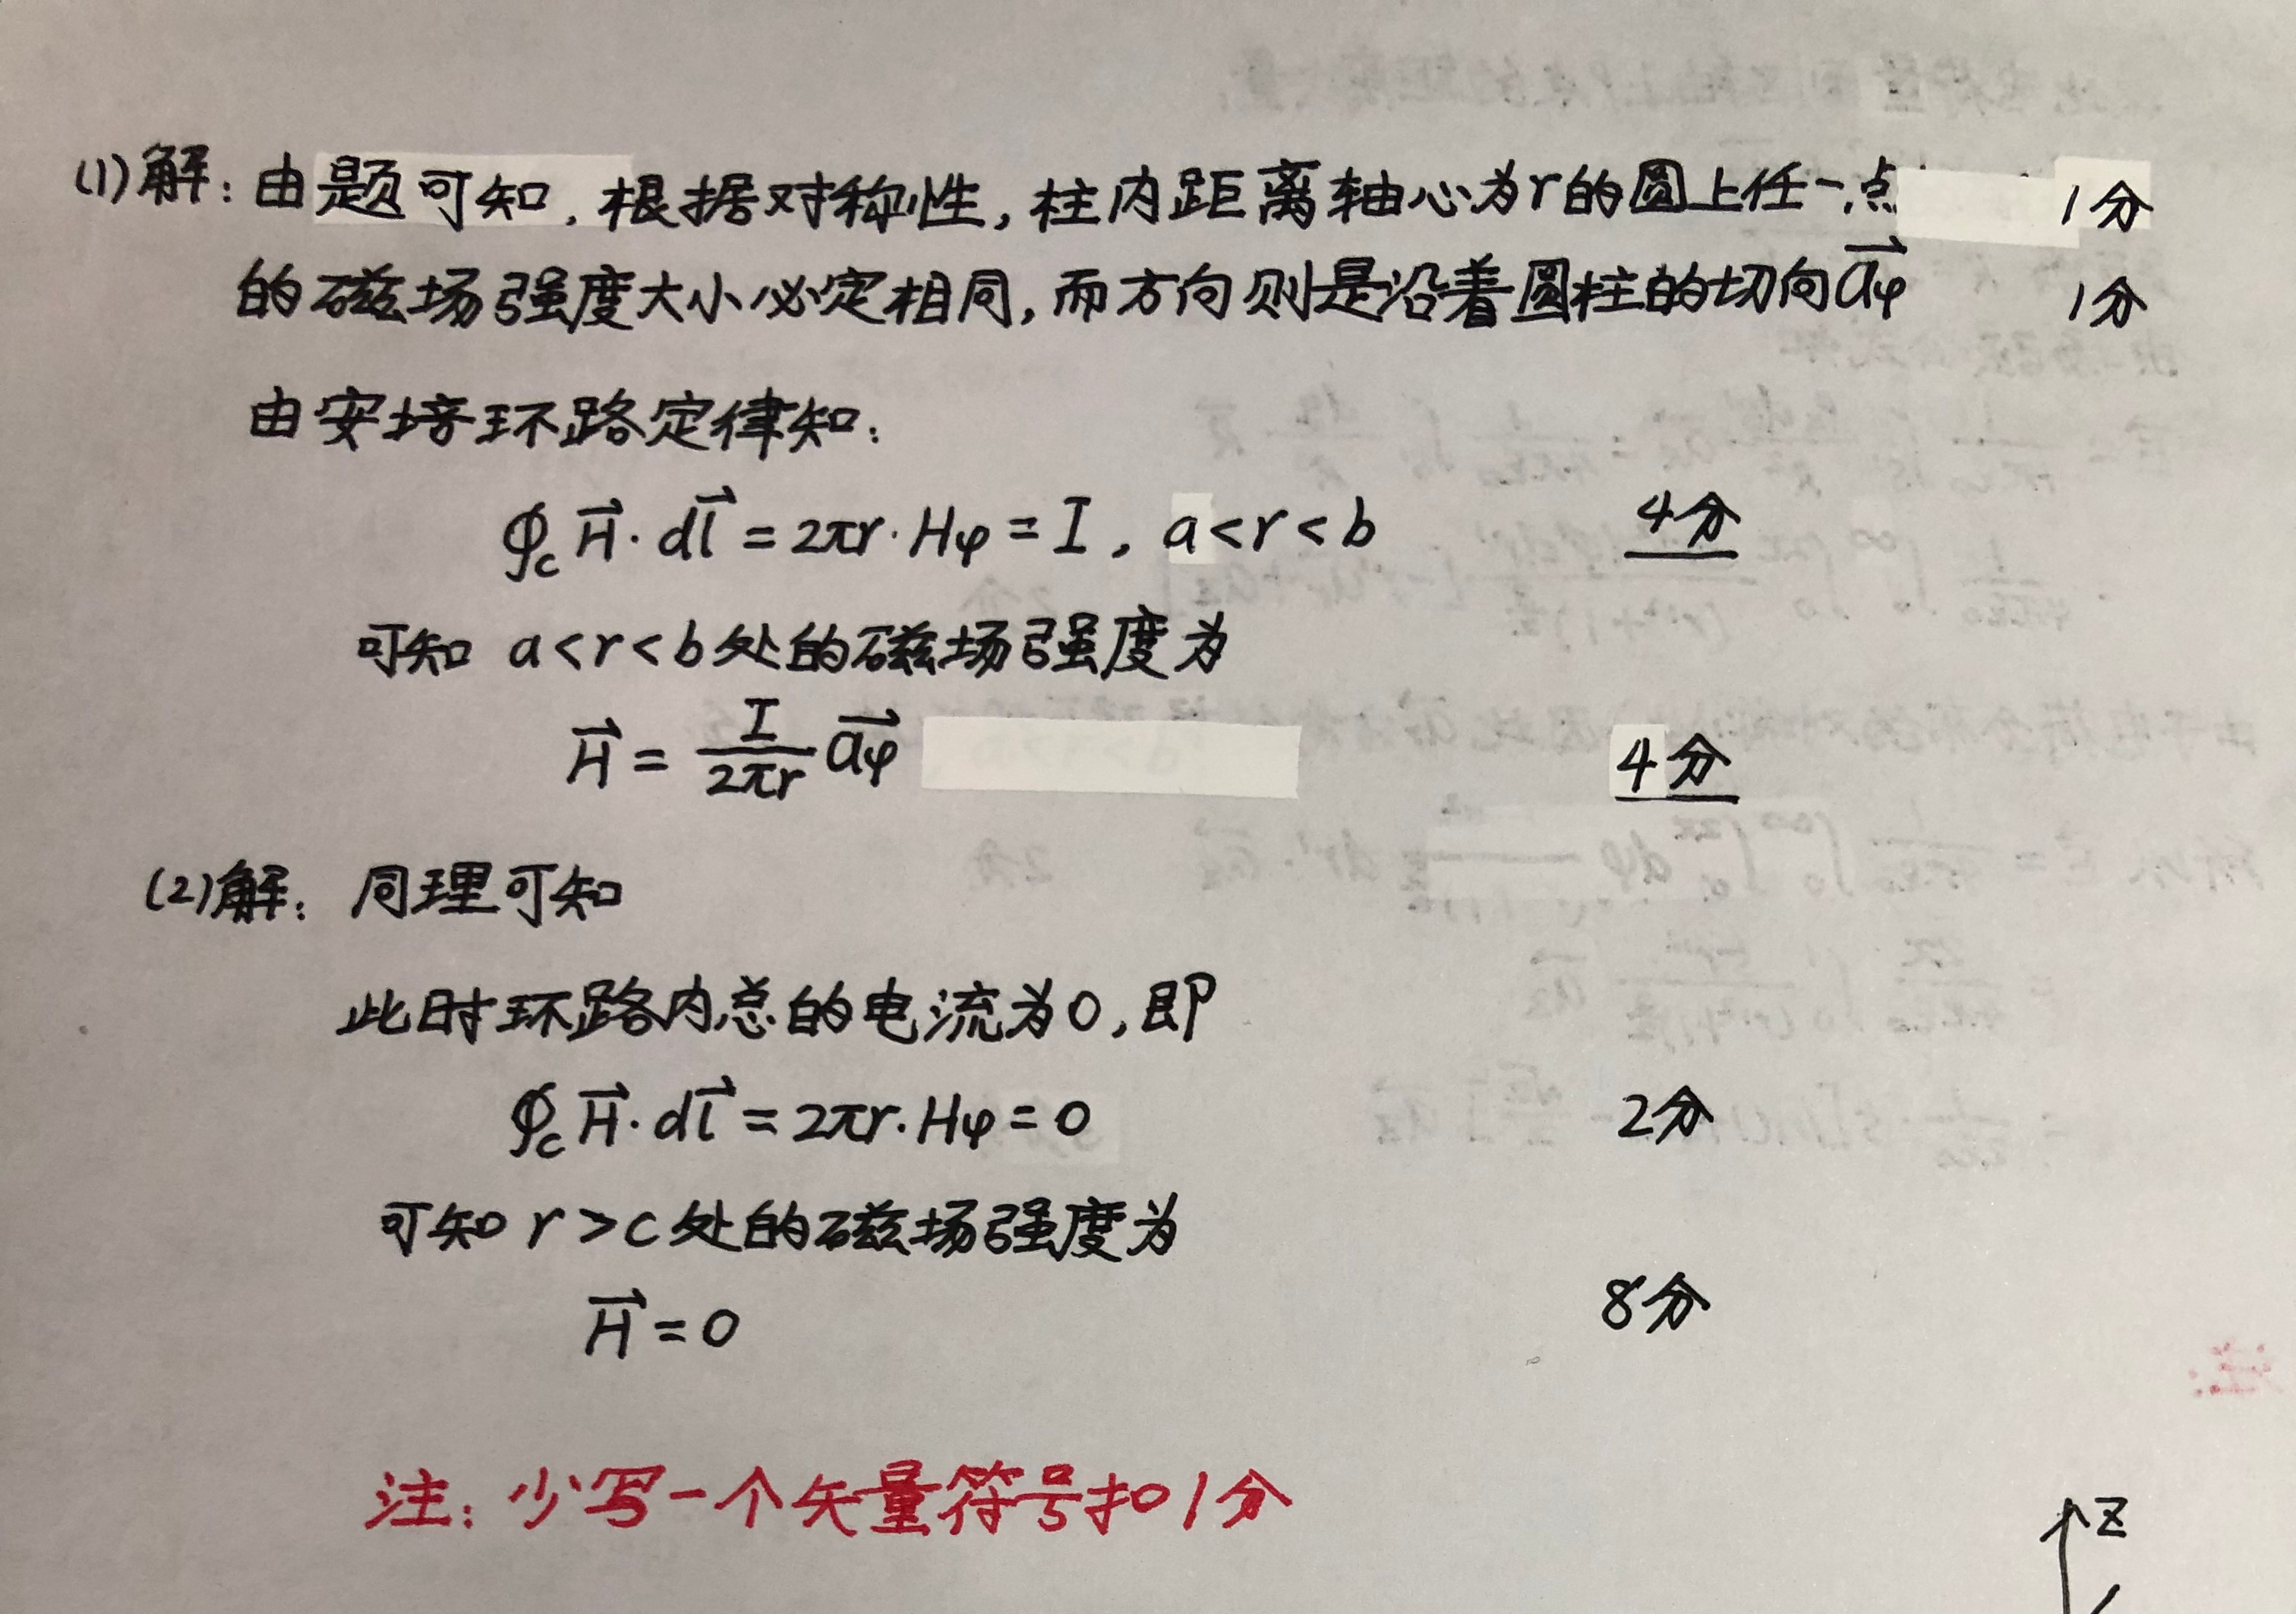 (1)解：由题可知，根据对称性，柱内距离轴心为r的圆上任一点 1分
的磁场强度大小必定相同，而方向则是沿着圆柱的切向a⃗φ 1分
由安培环路定律知：
∮c H⃗·dl⃗ = 2πr·Hφ = I，a<r<b 4分
可知 a<r<b处的磁场强度为
H⃗ = I/2πr a⃗φ 4分
(2)解：同理可知
此时环路内总的电流为0，即
∮c H⃗·dl⃗ = 2πr·Hφ = 0 2分
可知 r>c处的磁场强度为
H⃗ = 0 8分
注：少写一个矢量符号扣1分
z